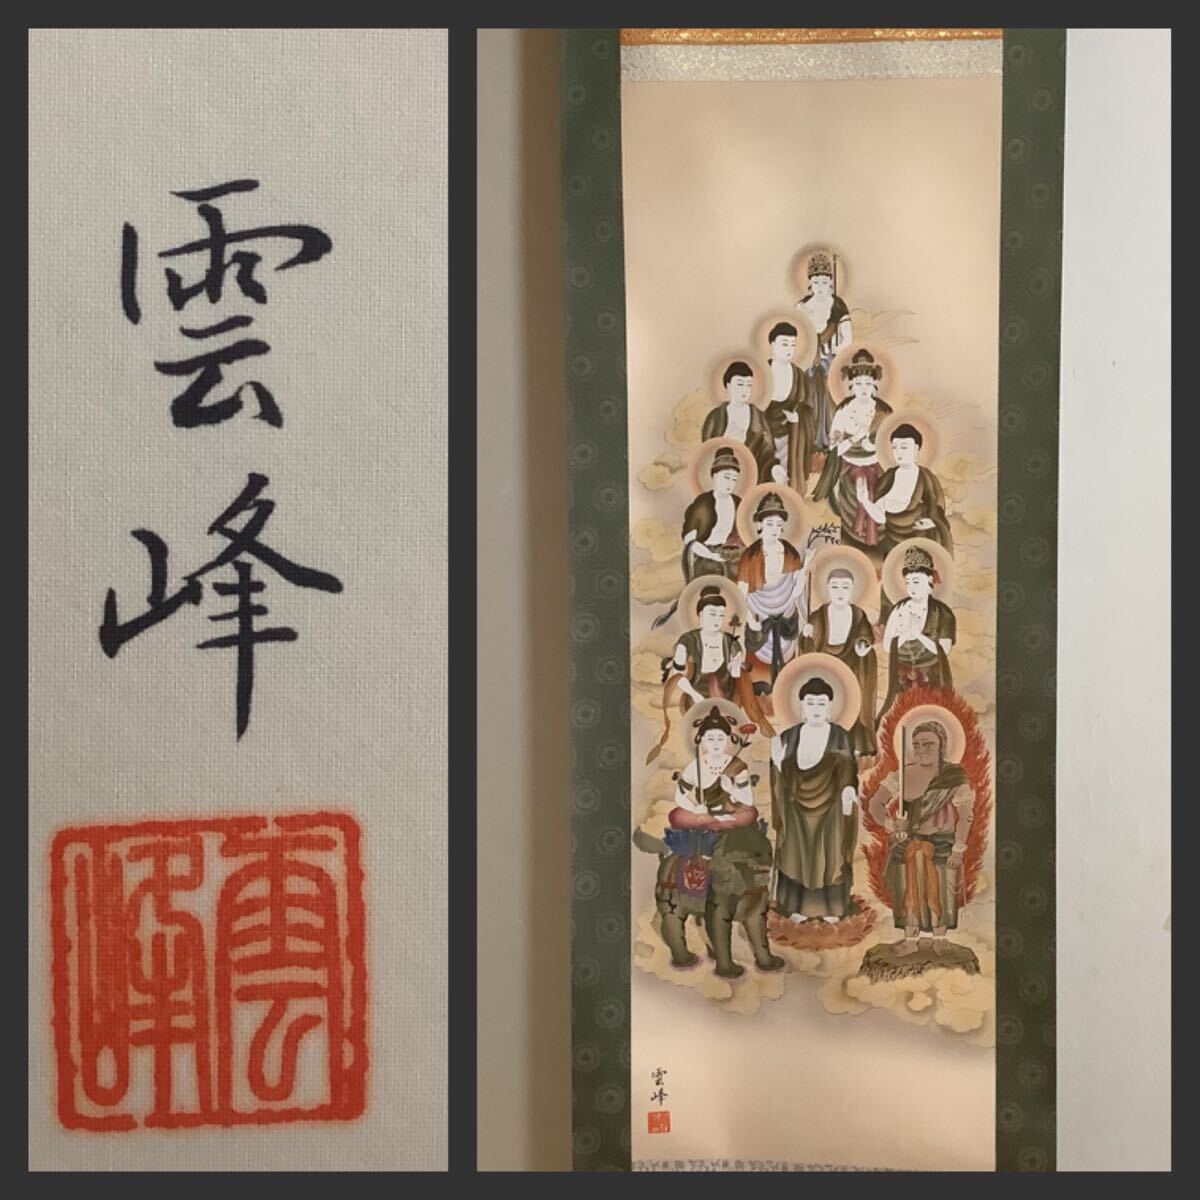 雲峰
雲峰
雲峰